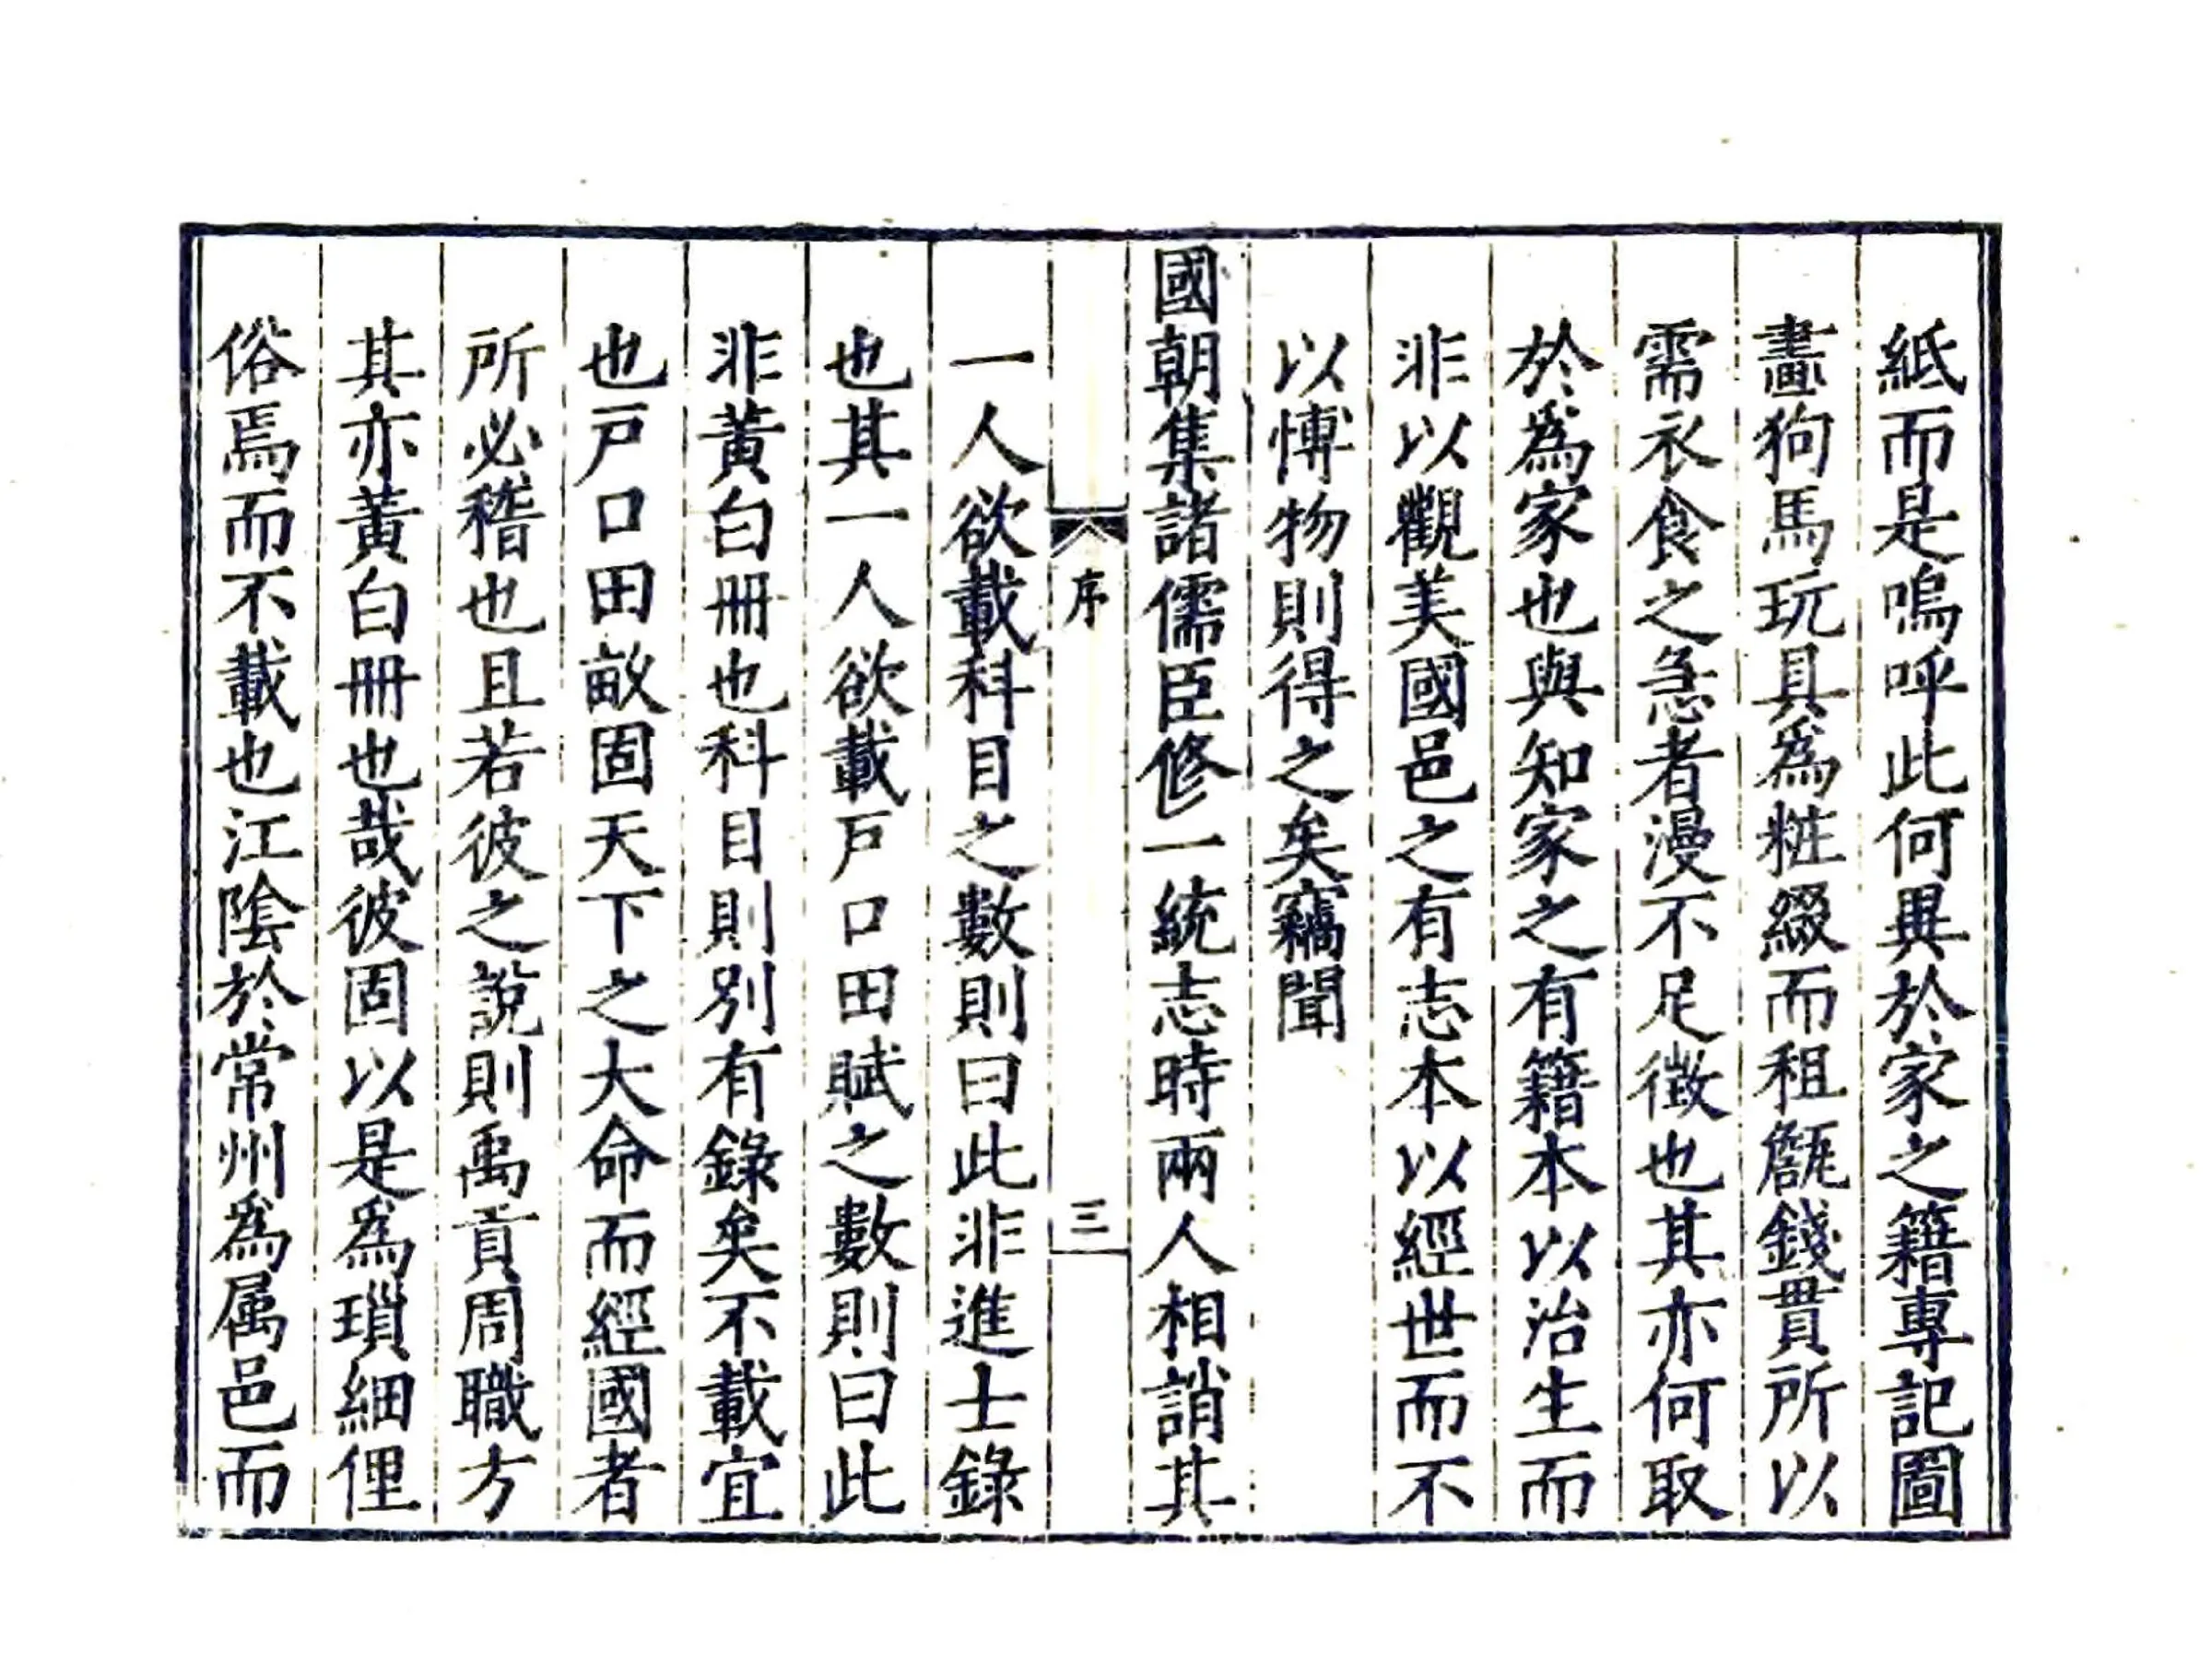 紙而是嗚呼此何異於家之籍專記圖
畫狗馬玩具為粧綴而租甔錢貫所以
需衣食之急者漫不足徴也其亦何取
於為家也與知家之有籍本以治生而
非以觀美國邑之有志本以經世而不
以愽物則得之矣竊聞
國朝集諸儒臣修一統志時兩人相誚其
序
三
一人欲載科目之數則曰此非進士錄
也其一人欲載戸口田賦之數則曰此
非黄白冊也科目則別有錄矣不載宜
也戸口田畝固天下之大命而經國者
所必稽也且若彼之說則禹貢周職方
其亦黄白冊也哉彼固以是為瑣細俚
俗焉而不載也江隂於常州為属邑而